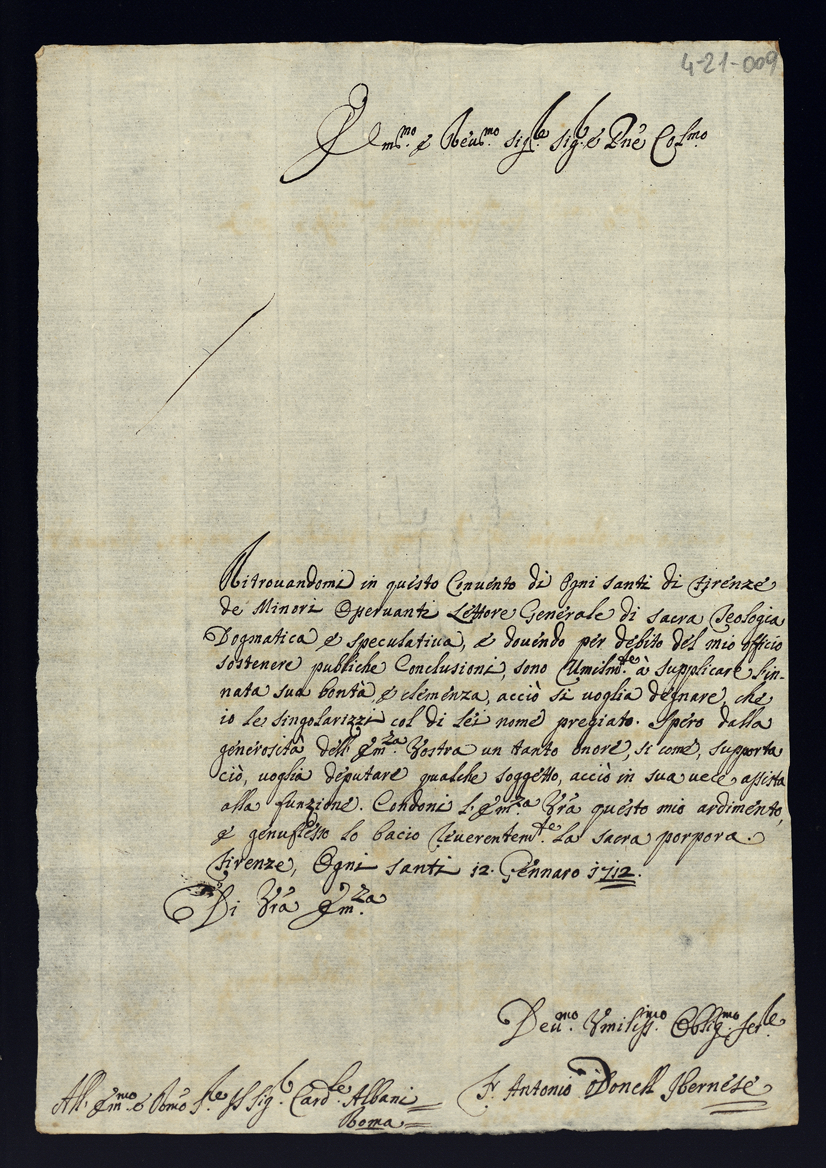 4-21-009
Em.mo e Reu.mo Sig.re Sig.r e Pne Col.mo
Ritrouandomi in questo Conuento di Ogni santi di Firenze
de Minori Osseruanti Lettore Generale di sacra Teologia
Dogmatica e speculatiua, e douendo per debito del mio officio
sostenere publiche Conclusioni, sono Umilm.te à supplicare l'in-
nata sua bontà, e clemenza, acciò si voglia degnare, che
io le singolarizzi col di lei nome pregiato. Spero dalla
generosità dell' Em.za Vostra un tanto onore, si come, supporta
ciò, voglia deputare qualche soggetto, acciò in sua vece assista
alla funzione. Condoni l'Em.za Vrã questo mio ardimento,
e genuflesso lo bacio reuerentem.te la sacra porpora.
Firenze, Ogni santi 12. Gennaro 1712.
Di Vrã Em.za
Deu.mo Vmiliss.imo Oblig.mo ser.le
All' Em.mo e Rmo Sig.r Card.le Albani
Roma
Fr Antonio ODonell Ibernese